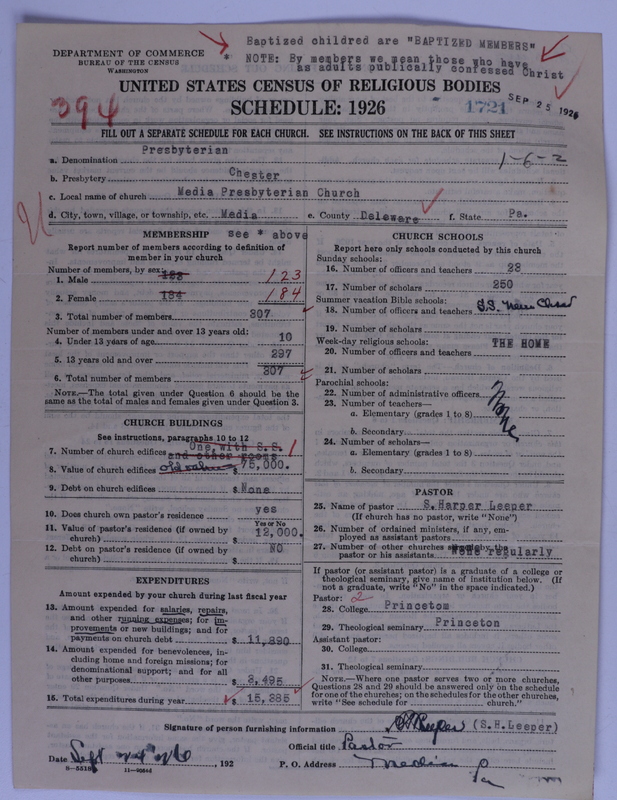 Baptized childred are "BAPTIZED MEMBERS"
* NOTE: By members we mean those who have
as adults publically confessed Christ
DEPARTMENT OF COMMERCE
BUREAU OF THE CENSUS
WASHINGTON
UNITED STATES CENSUS OF RELIGIOUS BODIES
SCHEDULE: 1926
394
1721
SEP 25 1926
FILL OUT A SEPARATE SCHEDULE FOR EACH CHURCH. SEE INSTRUCTIONS ON THE BACK OF THIS SHEET
1-6-2
a. Denomination Presbyterian
b. Presbytery Chester
c. Local name of church Media Presbyterian Church
d. City, town, village, or township, etc. Media e. County Delaware f. State Pa.
MEMBERSHIP see * above
Report number of members according to definition of
member in your church
Number of members, by sex:
1. Male 123 123
2. Female 184 184
3. Total number of members 307
Number of members under and over 13 years old:
4. Under 13 years of age 10
5. 13 years old and over 297
6. Total number of members 307
NOTE.—The total given under Question 6 should be the
same as the total of males and females given under Question 3.
CHURCH BUILDINGS
See instructions, paragraphs 10 to 12
7. Number of church edifices One, with S.S. 1
and other rooms
8. Value of church edifices $ 75,000.
9. Debt on church edifices $ None
10. Does church own pastor's residence yes
Yes or No
11. Value of pastor's residence (if owned by
church) $ 12,000.
12. Debt on pastor's residence (if owned by
church) $ NO
EXPENDITURES
Amount expended by your church during last fiscal year
13. Amount expended for salaries, repairs,
and other running expenses; for im-
provements or new buildings; and for
payments on church debt $ 11,890
14. Amount expended for benevolences, in-
cluding home and foreign missions; for
denominational support; and for all
other purposes $ 3,495
15. Total expenditures during year $ 15,385
CHURCH SCHOOLS
Report here only schools conducted by this church
Sunday schools:
16. Number of officers and teachers 23
17. Number of scholars 250
Summer vacation Bible schools:
18. Number of officers and teachers S.S.
19. Number of scholars
Week-day religious schools: THE HOME
20. Number of officers and teachers
21. Number of scholars
Parochial schools:
22. Number of administrative officers
23. Number of teachers—
a. Elementary (grades 1 to 8)
b. Secondary
None
24. Number of scholars—
a. Elementary (grades 1 to 8)
b. Secondary
PASTOR
25. Name of pastor S. Harper Leeper
(If church has no pastor, write "None")
26. Number of ordained ministers, if any, em-
ployed as assistant pastors
27. Number of other churches served by the
pastor or his assistants None regularly
If pastor (or assistant pastor) is a graduate of a college or
theological seminary, give name of institution below. (If
not a graduate, write "No" in the space indicated.)
Pastor: 2
28. College Princetom
29. Theological seminary Princeton
Assistant pastor:
30. College
31. Theological seminary
NOTE.—Where one pastor serves two or more churches,
Questions 28 and 29 should be answered only on the schedule
for one of the churches; on the schedules for the other churches,
write "See schedule for church."
Signature of person furnishing information S H Leeper (S.H.Leeper)
Official title Pastor
Date Sept 24 26, 192 P. O. Address Media Pa